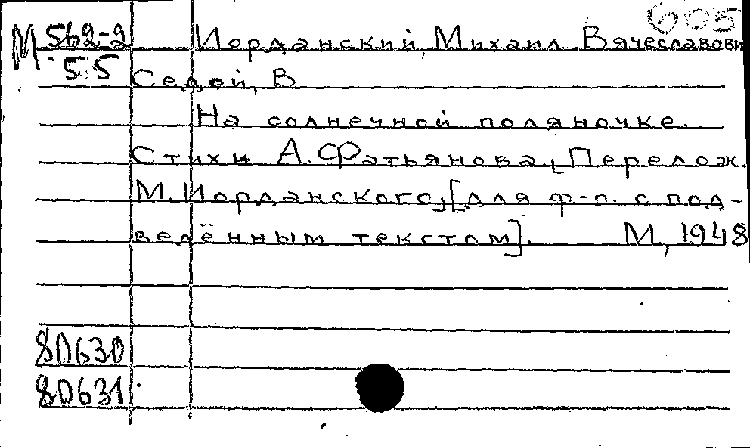 605
М 562-2 Иорданский, Михаил Вячеславови
55 Седой, В.
На солнечной поляночке.
Стихи А. Фатьянова, [Перелож.
М. Иорданского], [для ф-п. с под-
ведённым текстом]. М, 1948
80630
80631